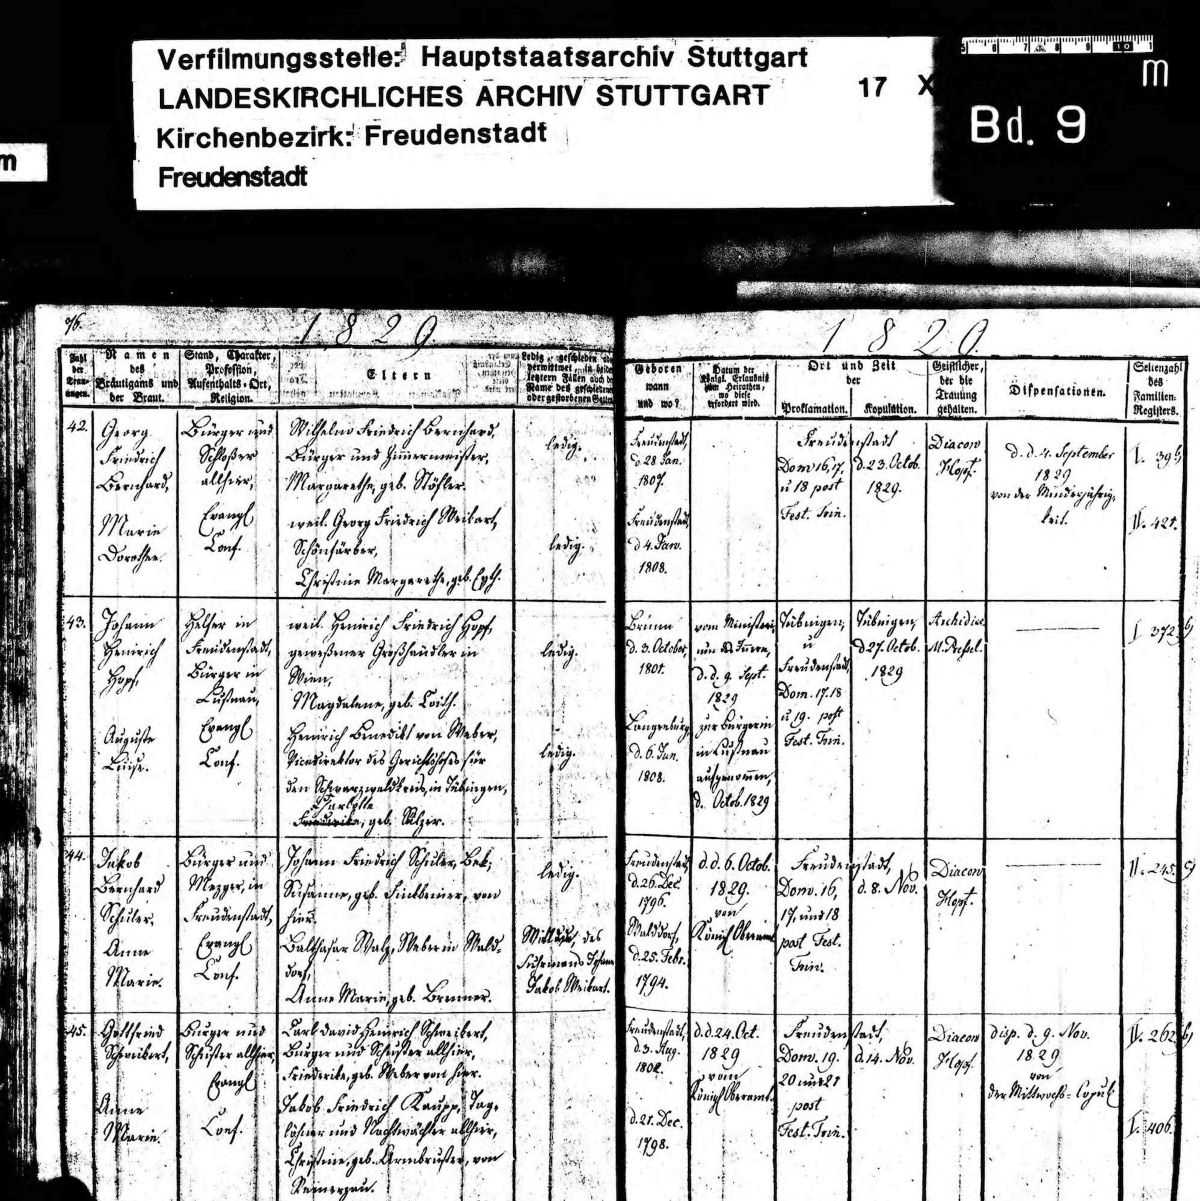 Verfilmungsstelle: Hauptstaatsarchiv Stuttgart
LANDESKIRCHLICHES ARCHIV STUTTGART
Kirchenbezirk: Freudenstadt
Freudenstadt
17 X
m
Bd. 9
m
76.
1829.
1829.
Zahl der Trauungen.
Namen des Bräutigams und der Braut.
Stand, Charakter, Profession, Aufenthalts-Ort, Religion.
Eltern
Ledig, geschieden oder verwittwet, in beiden letztern Fällen auch der Name des geschiedenen oder gestorbenen Gatten
Geboren wann und wo?
Datum der Königl. Erlaubniß zum Heirathen, wo diese erfordert wird.
Ort und Zeit der
Proklamation.
Kopulation.
Geistlicher, der die Trauung gehalten.
Dispensationen.
Seitenzahl des Familien-Registers.
42.
Georg
Friedrich
Bernhard,
Marie
Dorothee.
Bürger und
Schlosser
allhier,
Evangl
Conf.
Wilhelm Friedrich Bernhard,
Bürger und Zimmermeister,
Margarethe, geb. Stöhler.
weil. Georg Friedrich Weikert,
Schönfärber,
Christine Margarethe, geb. Eyth.
ledig.
ledig.
Freudenstadt,
d. 28 Jan.
1807.
Freudenstadt,
d 4. Janr.
1808.
Freudenstadt
Dom 16, 17,
u 18 post
Fest. Trin.
d. 23. Octob.
1829.
Diacon
Hopf.
d. d. 4. September
1829
von der Minderjährig-
keit.
I. 395
II. 421.
43.
Johann
Heinrich
Hopf,
Auguste
Luise.
Helfer in
Freudenstadt,
Bürger in
Lustnau,
Evangl
Conf.
weil. Heinrich Friedrich Hopf,
gewesener Großhändler in
Wien,
Magdalene, geb.
Heinrich Benedikt von Weber,
Vicedirektor des Gerichtshofes für
den Schwarzwaldkreis, in Tübingen,
Charlotte
Friederike, geb.
ledig.
ledig.
Brünn
d. 3. October,
1801.
Langenburg,
d. 6. Jun.
1808.
vom Ministeri-
um des Innern,
d. d. 9. Sept.
1829
zur Bürgerin
in Lustnau
aufgenommen,
d. Octob. 1829
Tübingen,
u
Freudenstadt,
Dom. 17. 18
u 19. post
Fest. Trin.
Tübingen,
d 27. Octob.
1829
Archidiac.
M. Pressel.
I 372. b)
44.
Jakob
Bernhard
Schuler,
Anne
Marie.
Bürger und
Mezger, in
Freudenstadt,
Evangl
Conf.
Johann Friedrich Schuler, Bek,
Susanne, geb. Finkbeiner, von
hier.
Balthasar Walz, Weber in Wald-
dorf,
Anne Marie, geb. Brenner.
ledig.
Wittwe, des
Fuhrmanns Johann
Jakob Weikert.
Freudenstadt,
d. 26. Dec
1796.
Walddorf,
d. 25. Febr.
1794.
d. d. 6. Octob.
1829.
von
Königl Oberamt
Freudenstadt,
Dom. 16,
17, und 18
post Fest.
Trin.
d. 8. Nov.
Diacon
Hopf.
II. 245.
45.
Gottfried
Schweikert,
Anne
Marie.
Bürger und
Schuster allhier,
Evangl
Conf.
Carl David Heinrich Schweikert,
Bürger und Schuster allhier,
Friederike, geb. Weber von hier.
Jakob Friedrich Kaupp, Tag-
löhner und Nachtwächter allhier,
Christine, geb. Armbruster, von
Reinerzau.
Freudenstadt,
d. 3. Aug.
1802.
d. 21. Dec.
1798.
d. d. 24. Oct.
1829
vom
Königl Oberamt.
Freudenstadt,
Dom. 19.
20 und 21
post
Fest. Trin.
d. 14. Nov.
Diacon
Hopf.
disp. d. 9. Nov.
1829
von
der Mittwochs-Copul
II. 262. b)
I. 406.